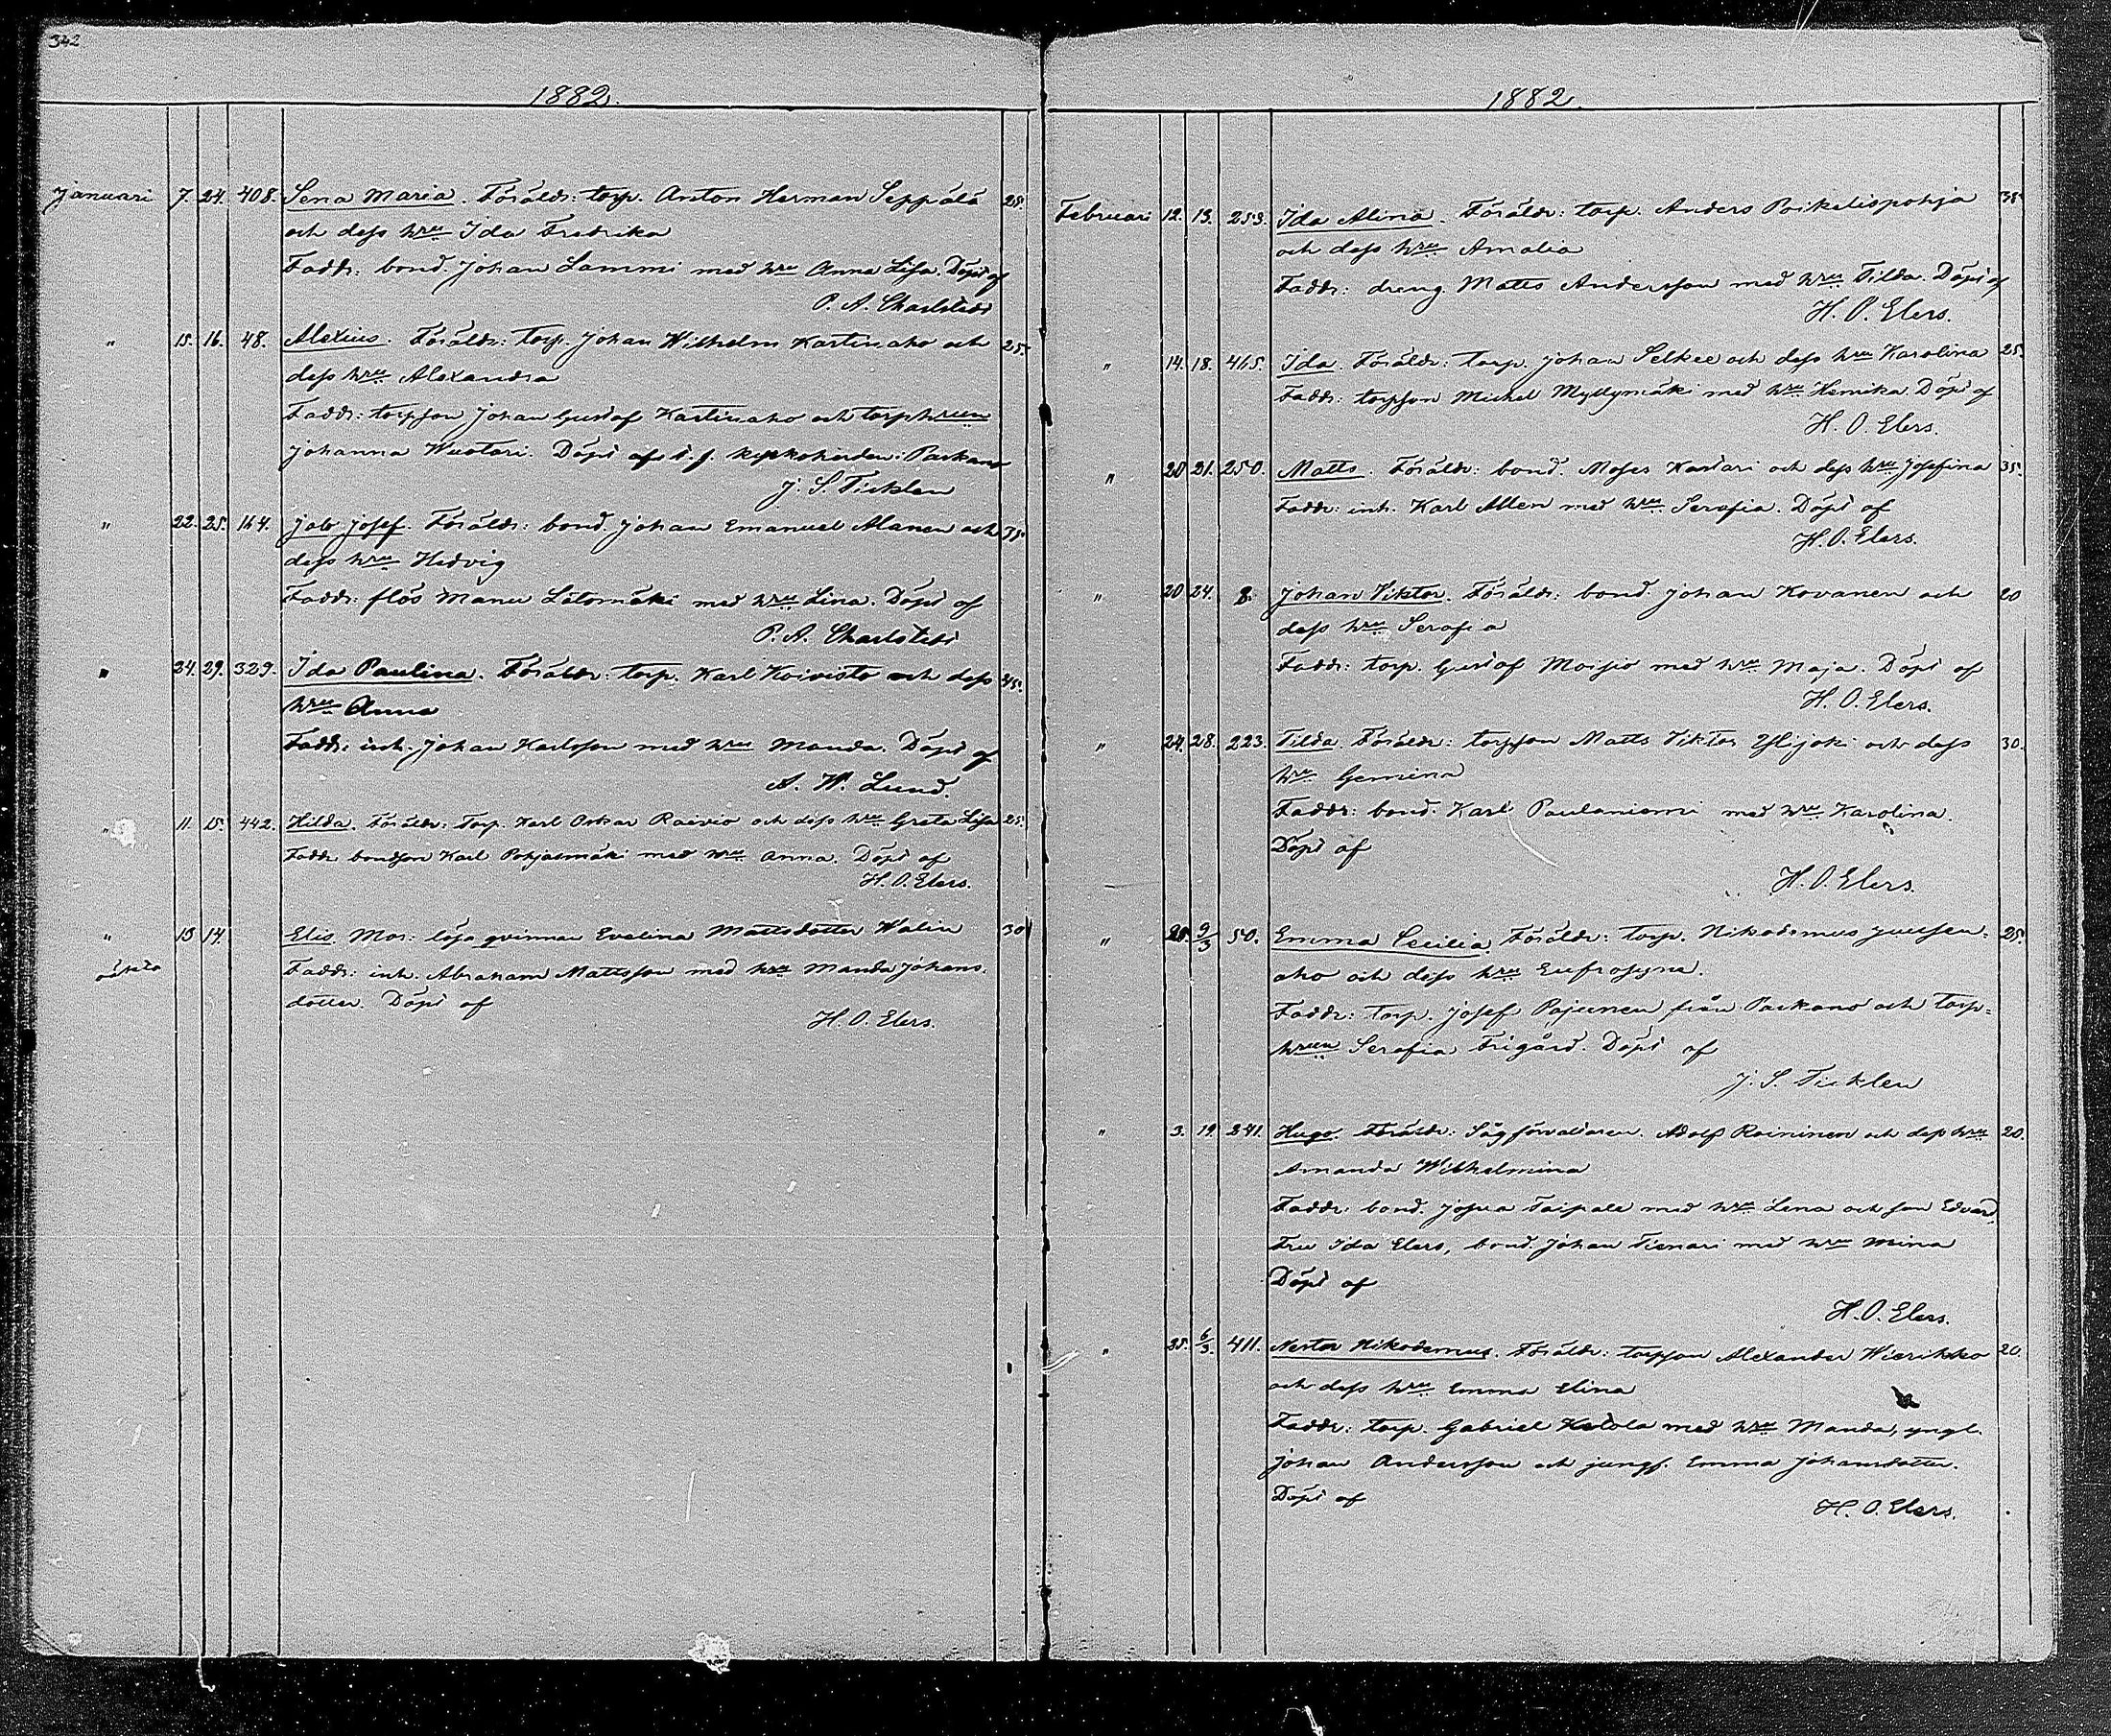 342
1882.
Januari 7. 24. 408. Sena Maria. Föräldr: torp. Anton Herman Seppälä 25.
och dess hru Ida Fredrika
Faddr: bond. Johan Lammi med hru Anna Lisa. Döpt af
P. A. Charlstedt
" 15. 16. 48. Alexius. Föräldr: torp. Johan Wilhelm Kartinaho och 25.
dess hru Alexandra
Faddr: torpson Johan Gustaf Kartinaho och torphrun
Johanna Wuotari. Döpt af i. f. kyrkoherden i Parkano
J. S. Ticklen
" 22. 25. 164. Job Josef. Föräldr: bond. Johan Emanuel Alanen och 35.
dess hru Hedvig
Faddr: flös Manu Lötsmäki med hru Lina. Döpt af
P. A. Charlstedt
" 24. 29. 329. Ida Paulina. Föräldr: torp. Karl Koivisto och dess 45.
hru Anna
Faddr: inh. Johan Karlsson med hru Manda. Döpt af
A. W. Lund.
" 11. 15. 442. Hilda. Föräldr: Torp. Karl Oskar Raivio och dess hru Greta Lisa 25.
Faddr bondson Karl Pohjasmäki med hru Anna. Döpt af
H. O. Elers.
" 13 14. Elis. Mor: lösa qvinnan Evelina Mattsdotter Walin 30
oäkta Faddr: inh. Abraham Mattsson med hru Manda Johans-
dotter. Döpt af
H. O. Elers.
1882
Februari 12. 13. 253. Ida Alina. Föräldr: torp. Anders Poikelispohja 35
och dess hru Amalia
Faddr: dreng Matts Andersson med hru Tilda. Döpt af
H. O. Elers.
" 14. 18. 465. Ida. Föräldr: torp. Johan Selkee och dess hru Karolina 25.
Faddr: torpson Michel Myllymäki med hru Henrika. Döpt af
H. O. Elers.
" 20 21. 250. Matts. Föräldr: bond. Moses Kantari och dess hru Josefina 35.
Faddr: inh. Karl Allen med hru Serafia. Döpt af
H. O. Elers.
" 20 24. 8. Johan Viktor. Föräldr: bond. Johan Kovanen och 20
dess hru Serafia
Faddr: torp. Gustaf Moisio med hru Maja. Döpt af
H. O. Elers.
" 24. 28. 223. Tilda. Föräldr: torpson Matts Viktor Ylijoki och dess 30.
hru Gemina
Faddr: bond. Karl Paulaniemi med hru Karolina.
Döpt af
H. O. Elers.
" 28. 9/3 50. Emma Cecilia. Föräldr: Torp. Nikodemus Juusen- 25.
aho och dess hru Eufrosyna.
Faddr: torp. Josef Pajunen från Parkano och torp-
hrun Serafia Frigård. Döpt af
J. S. Ticklen
" 3. 19. 241. Hugo. Föräldr: Sågförvaltaren. Adolf Roininen och dess hru 20.
Amanda Wilhelmina
Faddr: bond. Josua Taipale med hru Lena och son Edvard,
Fru Ida Elers, bond. Johan Tienari med hru Mina
Döpt af
H. O. Elers.
" 25. 6/3. 411. Nestor Nikodemus. Föräldr: torpson Alexander Wierikko 20.
och dess hru Emma Elina
Faddr: torp. Gabriel Ketola med hru Manda, yngl.
Johan Andersson och jungf. Emma Johansdotter.
Döpt af
H. O. Elers.